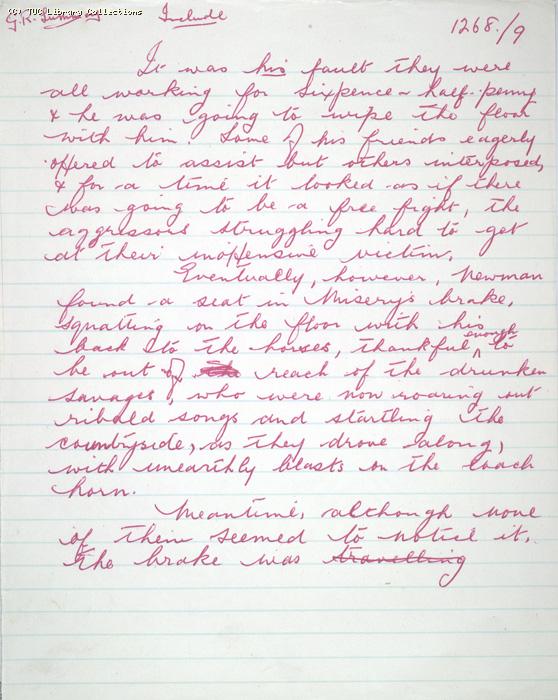 (C) TUC Library Collections
G.K. Include
1268./9
It was his fault they were
all working for sixpence-half-penny
& he was going to wipe the floor
with him. Some of his friends eagerly
offered to assist but others interposed,
& for a time it looked as if there
was going to be a free fight, the
aggressors struggling hard to get
at their inoffensive victim.
Eventually, however, Newman
found a seat in Misery's brake,
squatting on the floor with his
back to the horses, thankful enough to
be out of reach of the drunken
savages, who were now roaring out
ribald songs and startling the
countryside, as they drove along,
with unearthly blasts on the coach
horn.
Meantime, although none
of them seemed to notice it,
the brake was travelling